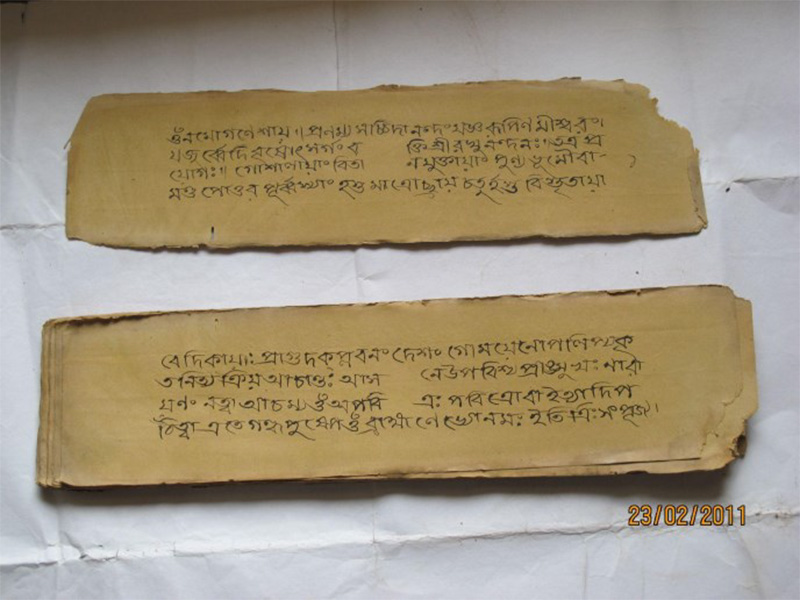 ওঁ নমো গণেশায়॥ প্রনম্য সচ্চিদানন্দং যজ্ঞরূপিণমীশ্বরং
বক্তি শ্রীরঘুনন্দনঃ॥ তত্র প্র
যোগঃ॥ গোশালায়াং বিতা নযুক্তায়াং
মণ্ড পোত্তর পূর্ব্বস্যাং হস্ত মাত্রোচ্ছ্রায় চতুর্হস্ত বিস্তৃতায়া
বেদিকায়াঃ প্রাগুদক্ প্লবনং দেশং গোময়েনোপলিপ্য কৃ
তনিত্যক্রিয় আচান্তঃ আস নে উপবিশ্য প্রাঙ্মুখঃ নারা
য়ণং নত্বা আচম্য ওঁ অপবি ত্রঃ পবিত্রো বা ইত্যাদি প
ঠিত্বা এতে গন্ধপুষ্পে ওঁ ব্রাহ্মণেভ্যো নমঃ ইতি ত্রিঃ সংপূজ্য।
23/02/2011